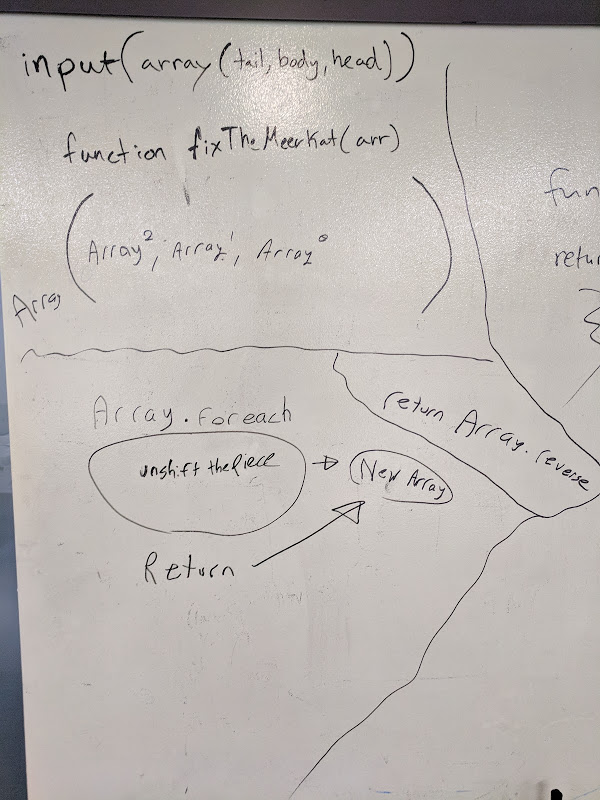 input(array(tail, body, head))
function fixTheMeerKat(arr)
Array², Array¹, Array⁰
Array
Array.foreach
unshift the Piece
New Array
Return
return Array.reverse
fun
retur